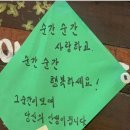 순간 순간
사랑하고
순간 순간
행복하세요!
그 순간이 모여
당신의 인생이 됩니다